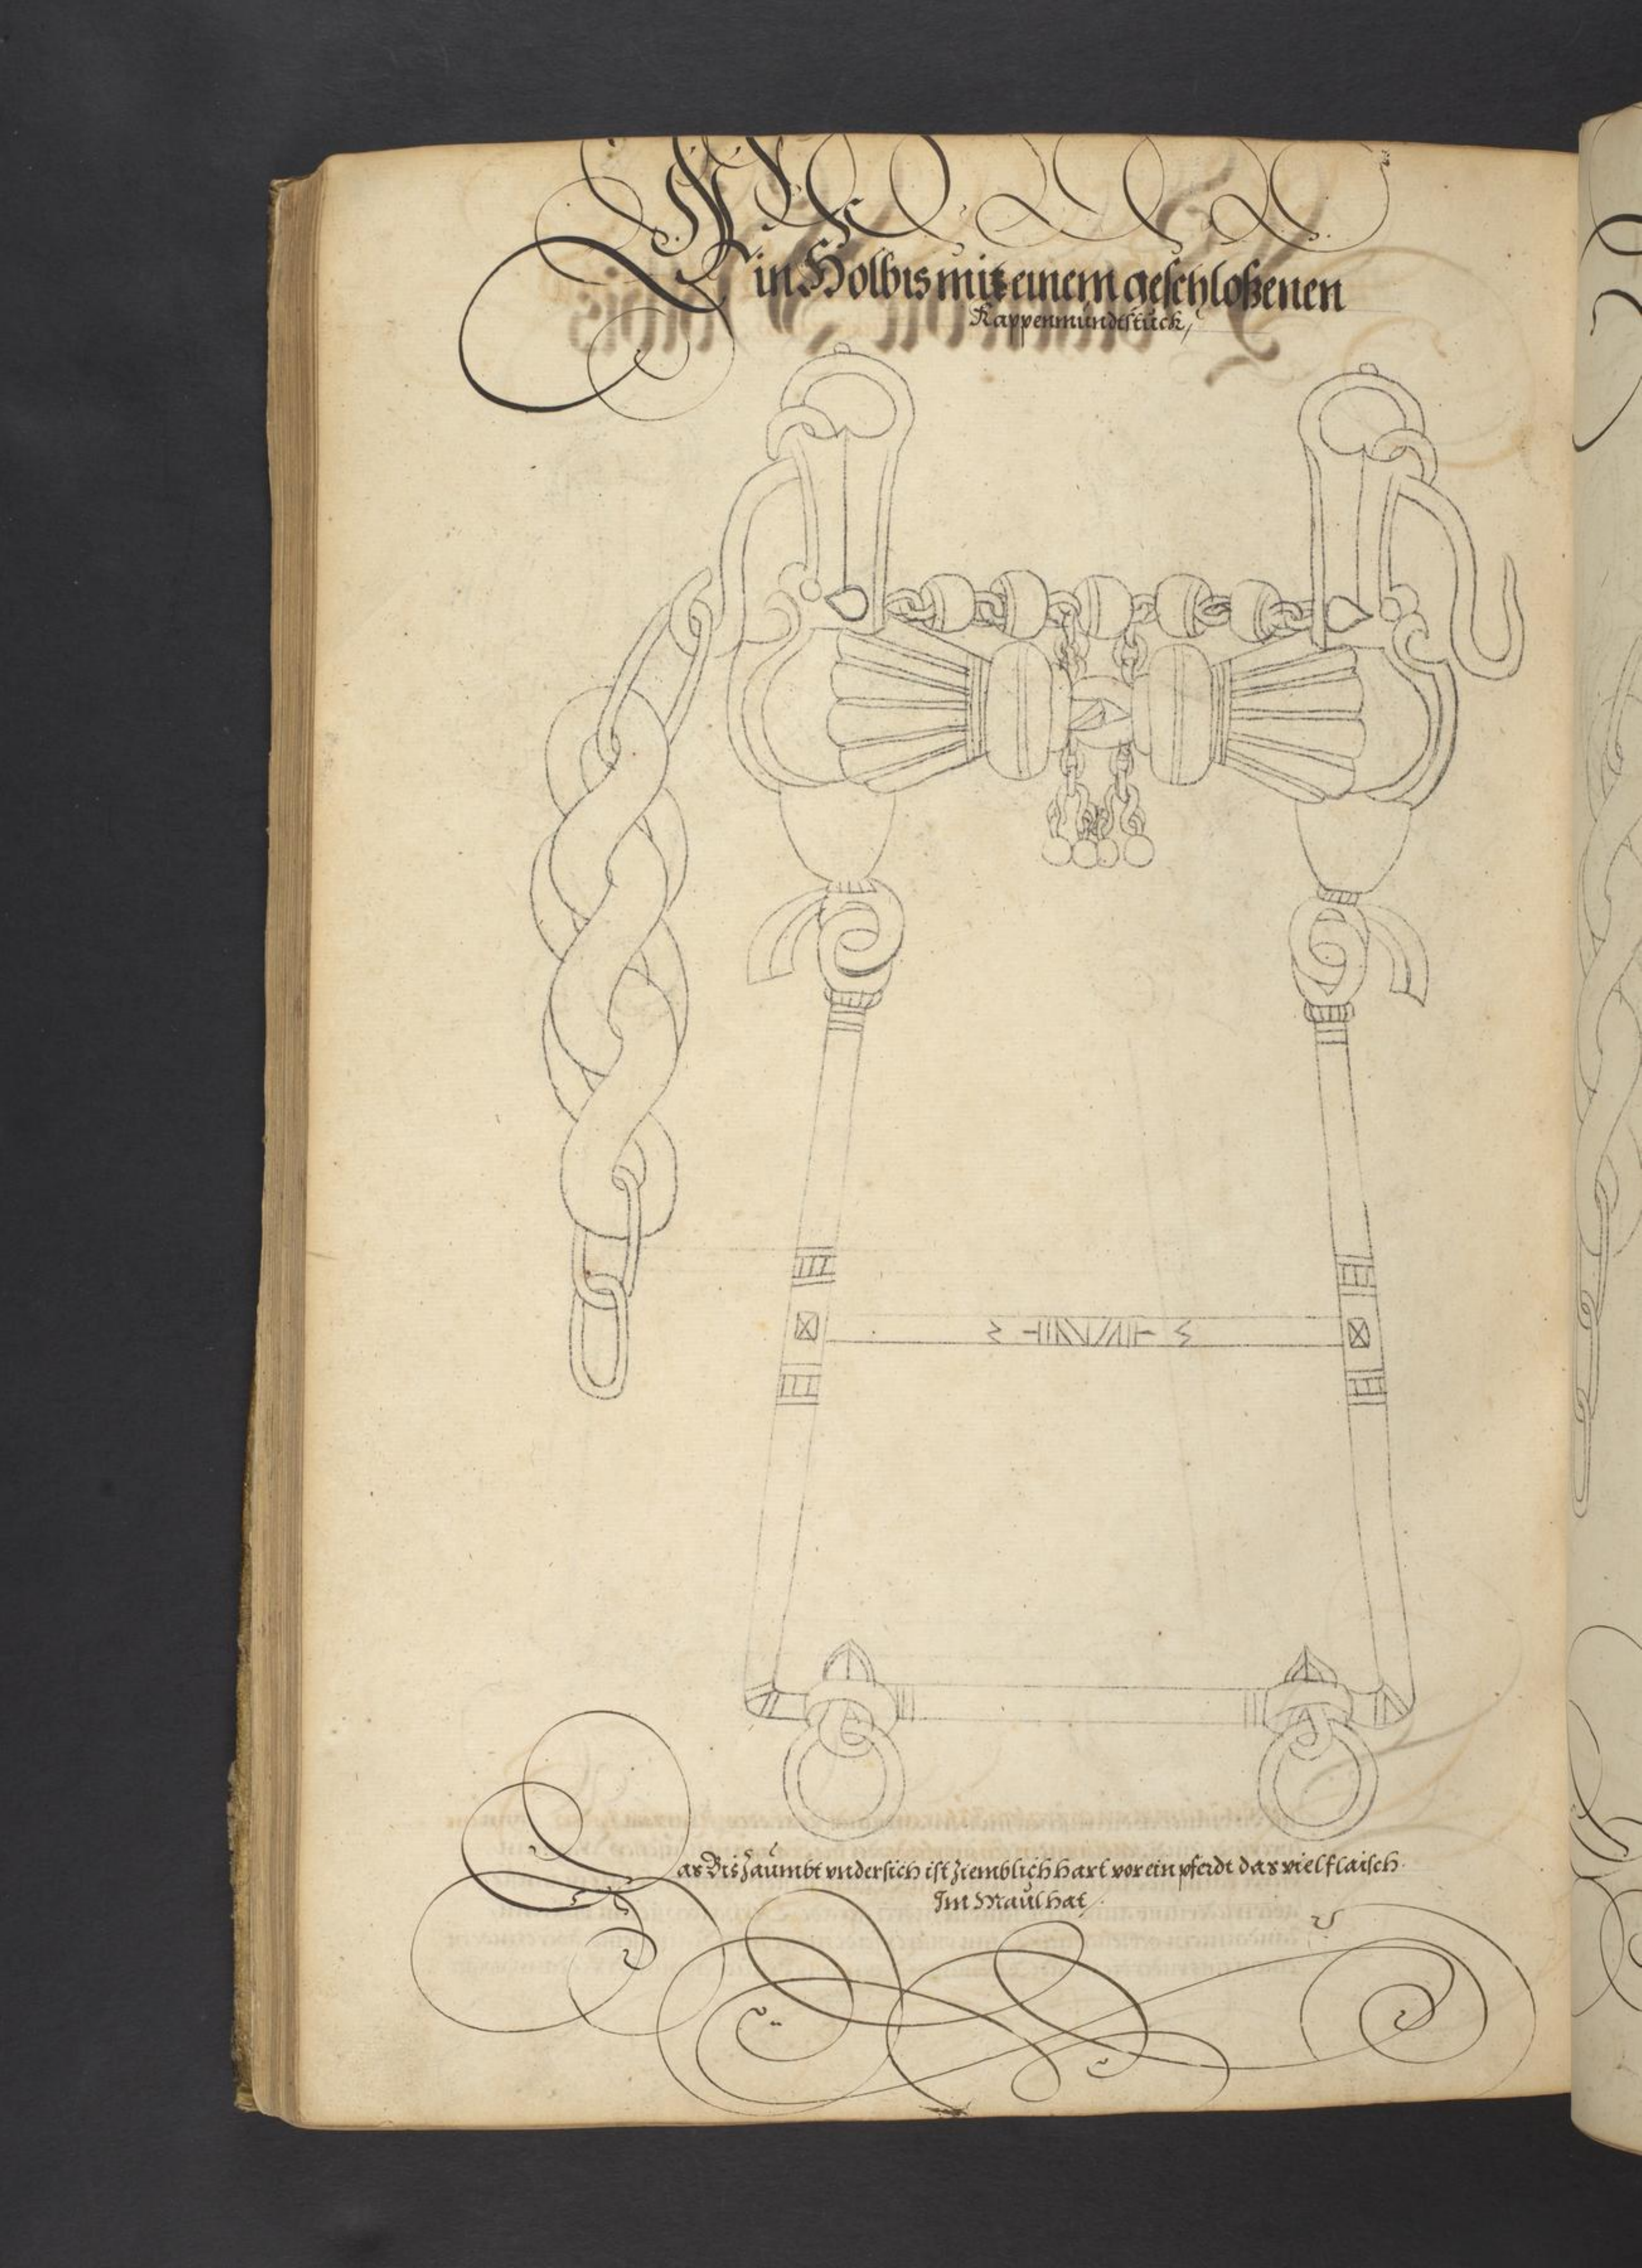 Ein Holbis mit einem geschloßenen
Kappenmundtstück,
Das Bis Zäumbt vndersich ist ziemblich hart vor ein pferdt das viel flaisch
Im Maul hat,